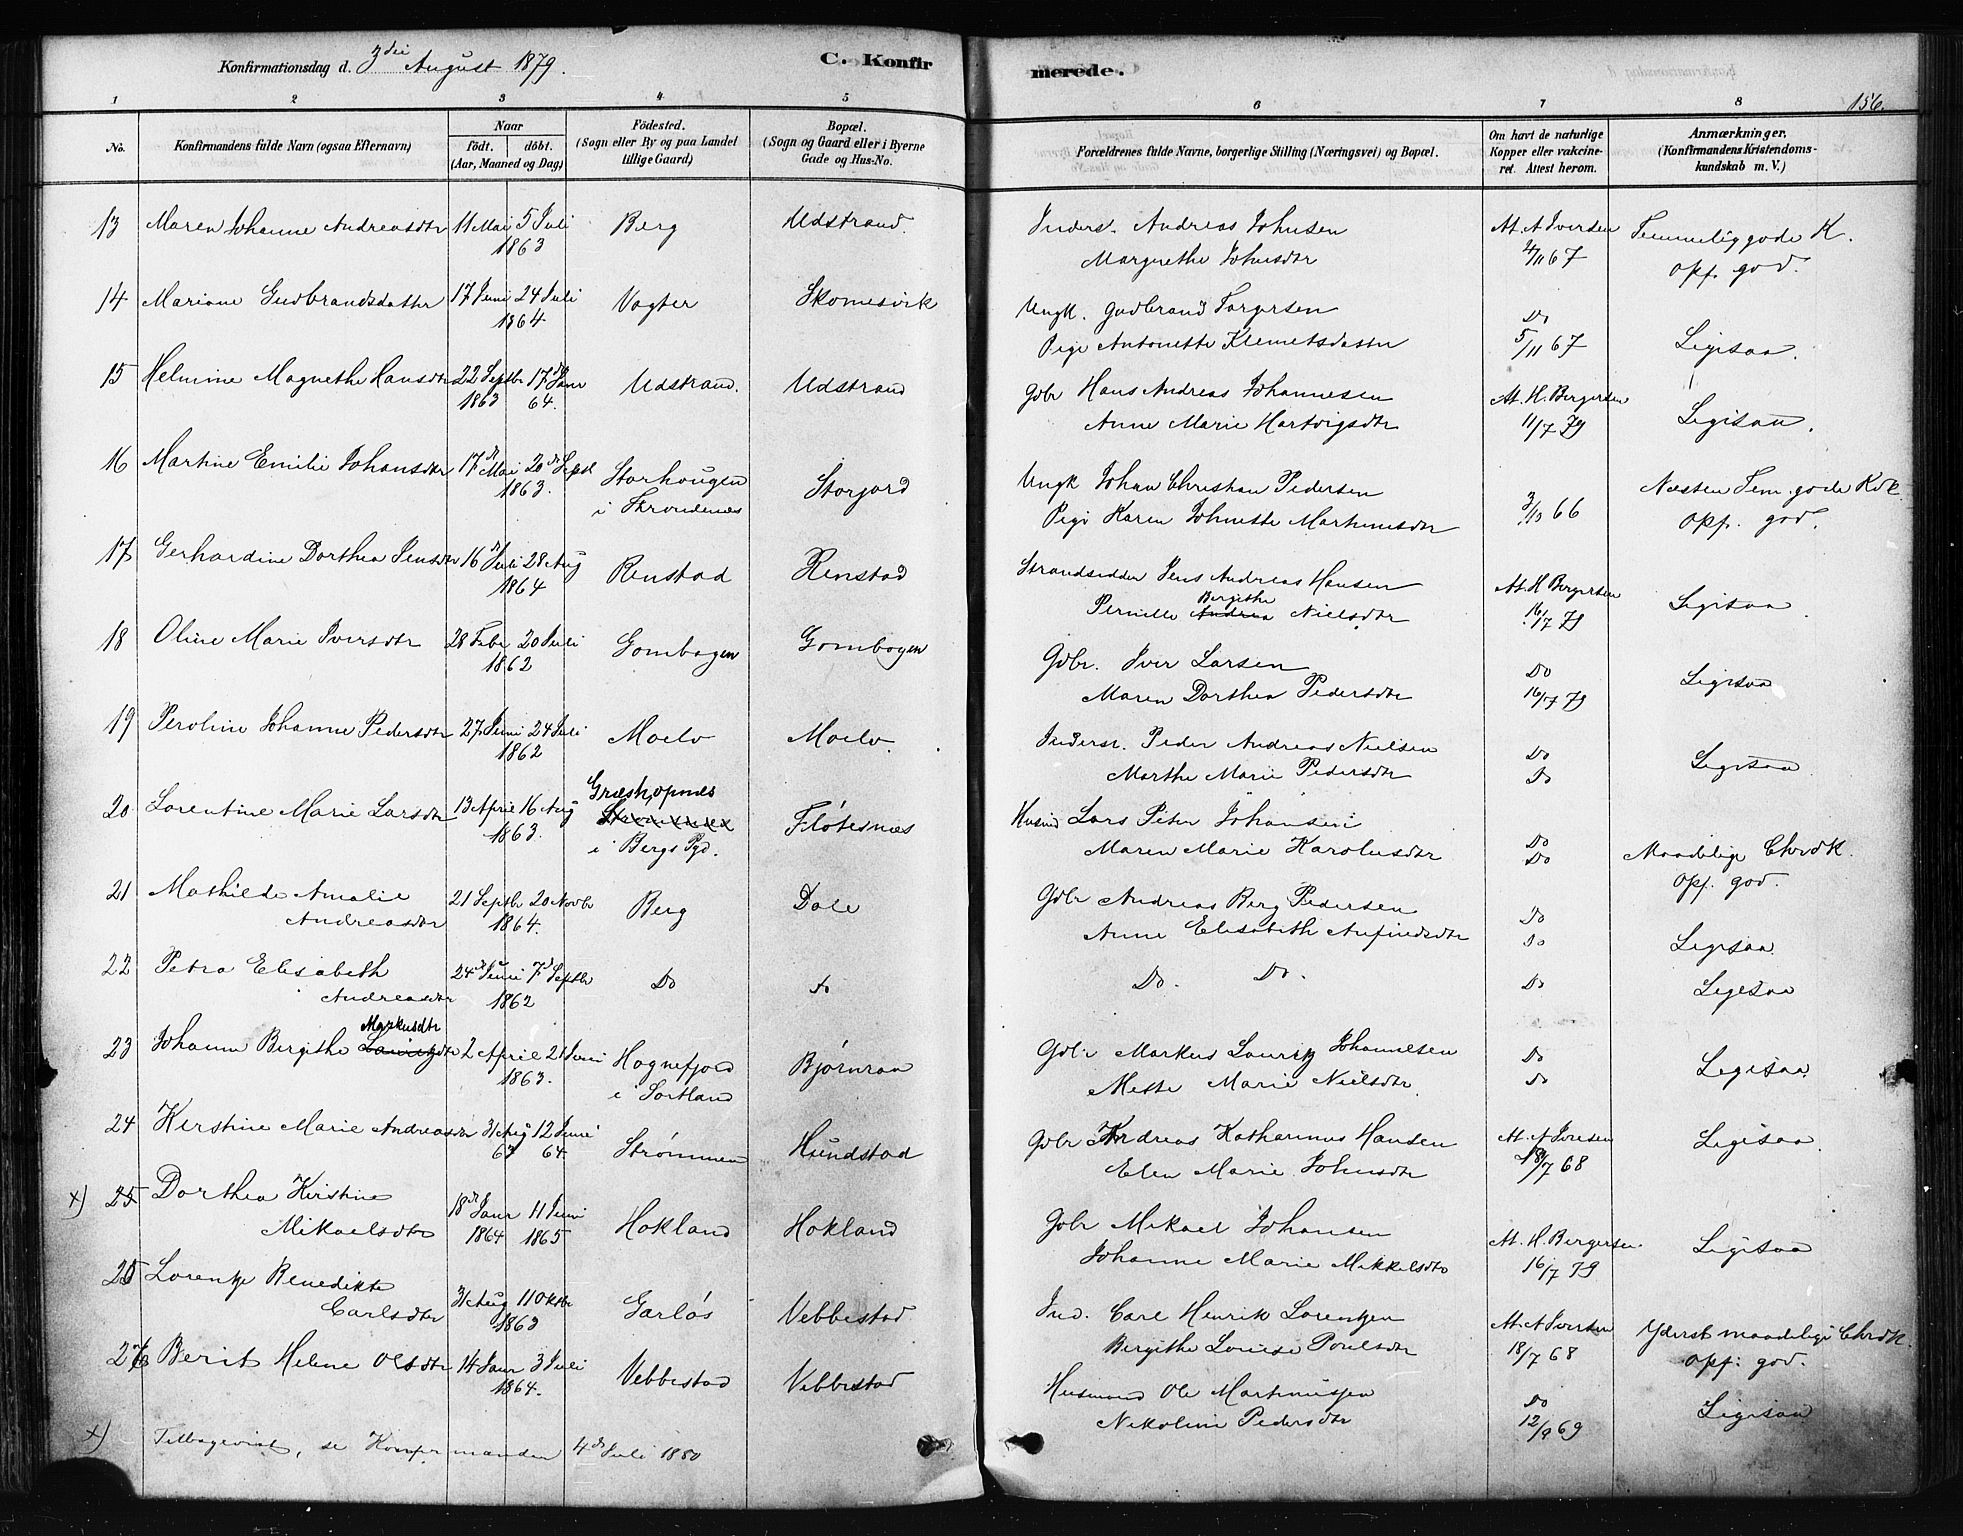 Konfirmationsdag d. 3die August 1879.
C. Konfirmerede.
156.
1 2 3 4 5 6 7 8
No.
Konfirmandens fulde Navn (ogsaa Efternavn)
Naar
født. døbt.
(Aar, Maaned og Dag)
Fødested.
(Sogn eller By og paa Landet
tillige Gaard)
Bopæl.
(Sogn og Gaard eller i Byerne
Gade og Hus-No.
Forældrenes fulde Navne, borgerlige Stilling (Næringsvei) og Bopæl.
Om havt de naturlige
Kopper eller vakcine-
ret. Attest herom.
Anmærkninger.
(Konfirmandens Kristendoms-
kundskab m. V.)
13 Maren Johanne Andreasdtr 11 Mai 5 Juli 1863 Berg Udstrand. Inderst. Andreas Johnsen
Margrethe Johnsdtr At. A Iversen 4/11 67 Temmelig gode K.
opf. god.
14 Mariane Gudbrandsdatter 17 Juni 24 Juli 1864 Vogter Skomesvik Ungk. Gudbrand Torgersen
Pige Antonette Klemetsdatter Do 5/11 67 Ligesaa.
15 Helmine Magnethe Hansdtr 22 Septbr 1863 17de Janr 64. Udstrand. Udstrand Gdbr Hans Andreas Johannesen
Anne Marie Hartvigsdtr At. H. Bergersen 11/7 79 Ligesaa.
16 Martine Emilie Johansdtr 17d Mai 20de Sept 1863. Storhougen
i Throndenæs Storjord Ungk Johan Christian Pedersen
Pige Karen Johnette Martinusdtr 3/10 66 Næsten Tem. gode Kdk.
opf. god.
17 Gerhardine Dorthea Jensdtr 16d Juli 28 Aug 1864 Renstad Renstad Strandsidder Jens Andreas Hansen
Pernille Andrea Bergithe Nielsdtr At. H Bergersen 16/7 79 Ligesaa
18 Oline Marie Iversdtr 28 Febr 20 Juli 1862 Gombogen Gombogen Gdbr. Iver Larsen
Maren Dorthea Pedersdtr Do 16/7 79 Ligesaa
19 Peroline Johanne Pedersdtr 27 Juni 24 Juli 1862 Moelv Moelv. Inderst. Peder Andreas Nielsen
Marthe Marie Pedersdtr Do Do Ligesaa
20 Lorentine Marie Larsdtr 13 April 16 Aug 1863. Græshopnæs
i Bergs Pgd. Fløtesnæs Husmd Lars Peter Johansen
Maren Marie Karolusdtr Do Do Maadelige ChrdK.
opf. god.
21 Mathilde Amalie
Andreasdtr 21 Septbr 20 Novbr 1864. Berg Dale Gdbr Andreas Berg Pedersen
Anne Elisabeth Anfindsdtr Do Do Ligesaa
22 Petra Elisabeth
Andreasdtr 24d Juni 7d Septbr 1862 Do Do Do. Do. Do Ligesaa
23 Johanne Bergithe Markusdtr 2 April 21 Juni 1863. Hognefjord
i Sortland Bjørnraa Gdbr Markus Lauritz Johannesen
Mette Marie Nielsdtr. Do Do Ligesaa
24 Kerstine Marie Andreasdtr 31 Aug 63 12 Juni 64. Strømmen Hundstad Gdbr Andreas Katharinus Hansen
Elen Marie Johnsdtr At. A Iversen 18/7 68 Ligesaa
x) 25 Dorthea Kirstine
Mikaelsdtr 18d Janr 1864 11 Juni 1865 Hokland Hokland Gdbr Mikael Johansen
Johanne Marie Mikkelsdtr At. H. Bergersen. 16/7 79 Ligesaa
25 Lorentze Benedikte
Carlsdtr 31 Aug 11 Oktbr 1863 Garløs Vebbestad Ind. Carl Henrik Lorentzen
Bergithe Louise Poulsdtr At. A Iversen 18/7 68 Yderst maadelige ChrdK.
opf. god.
26 Berit Helene Olsdtr 14 Janr 3 Juli 1864. Vebbestad Vebbestad Husmand Ole Martinussen
Nikoline Pedersdtr Do 12/9 69 Ligesaa
x) Tilbagevist, se Konfirmander 4d Juli 1880